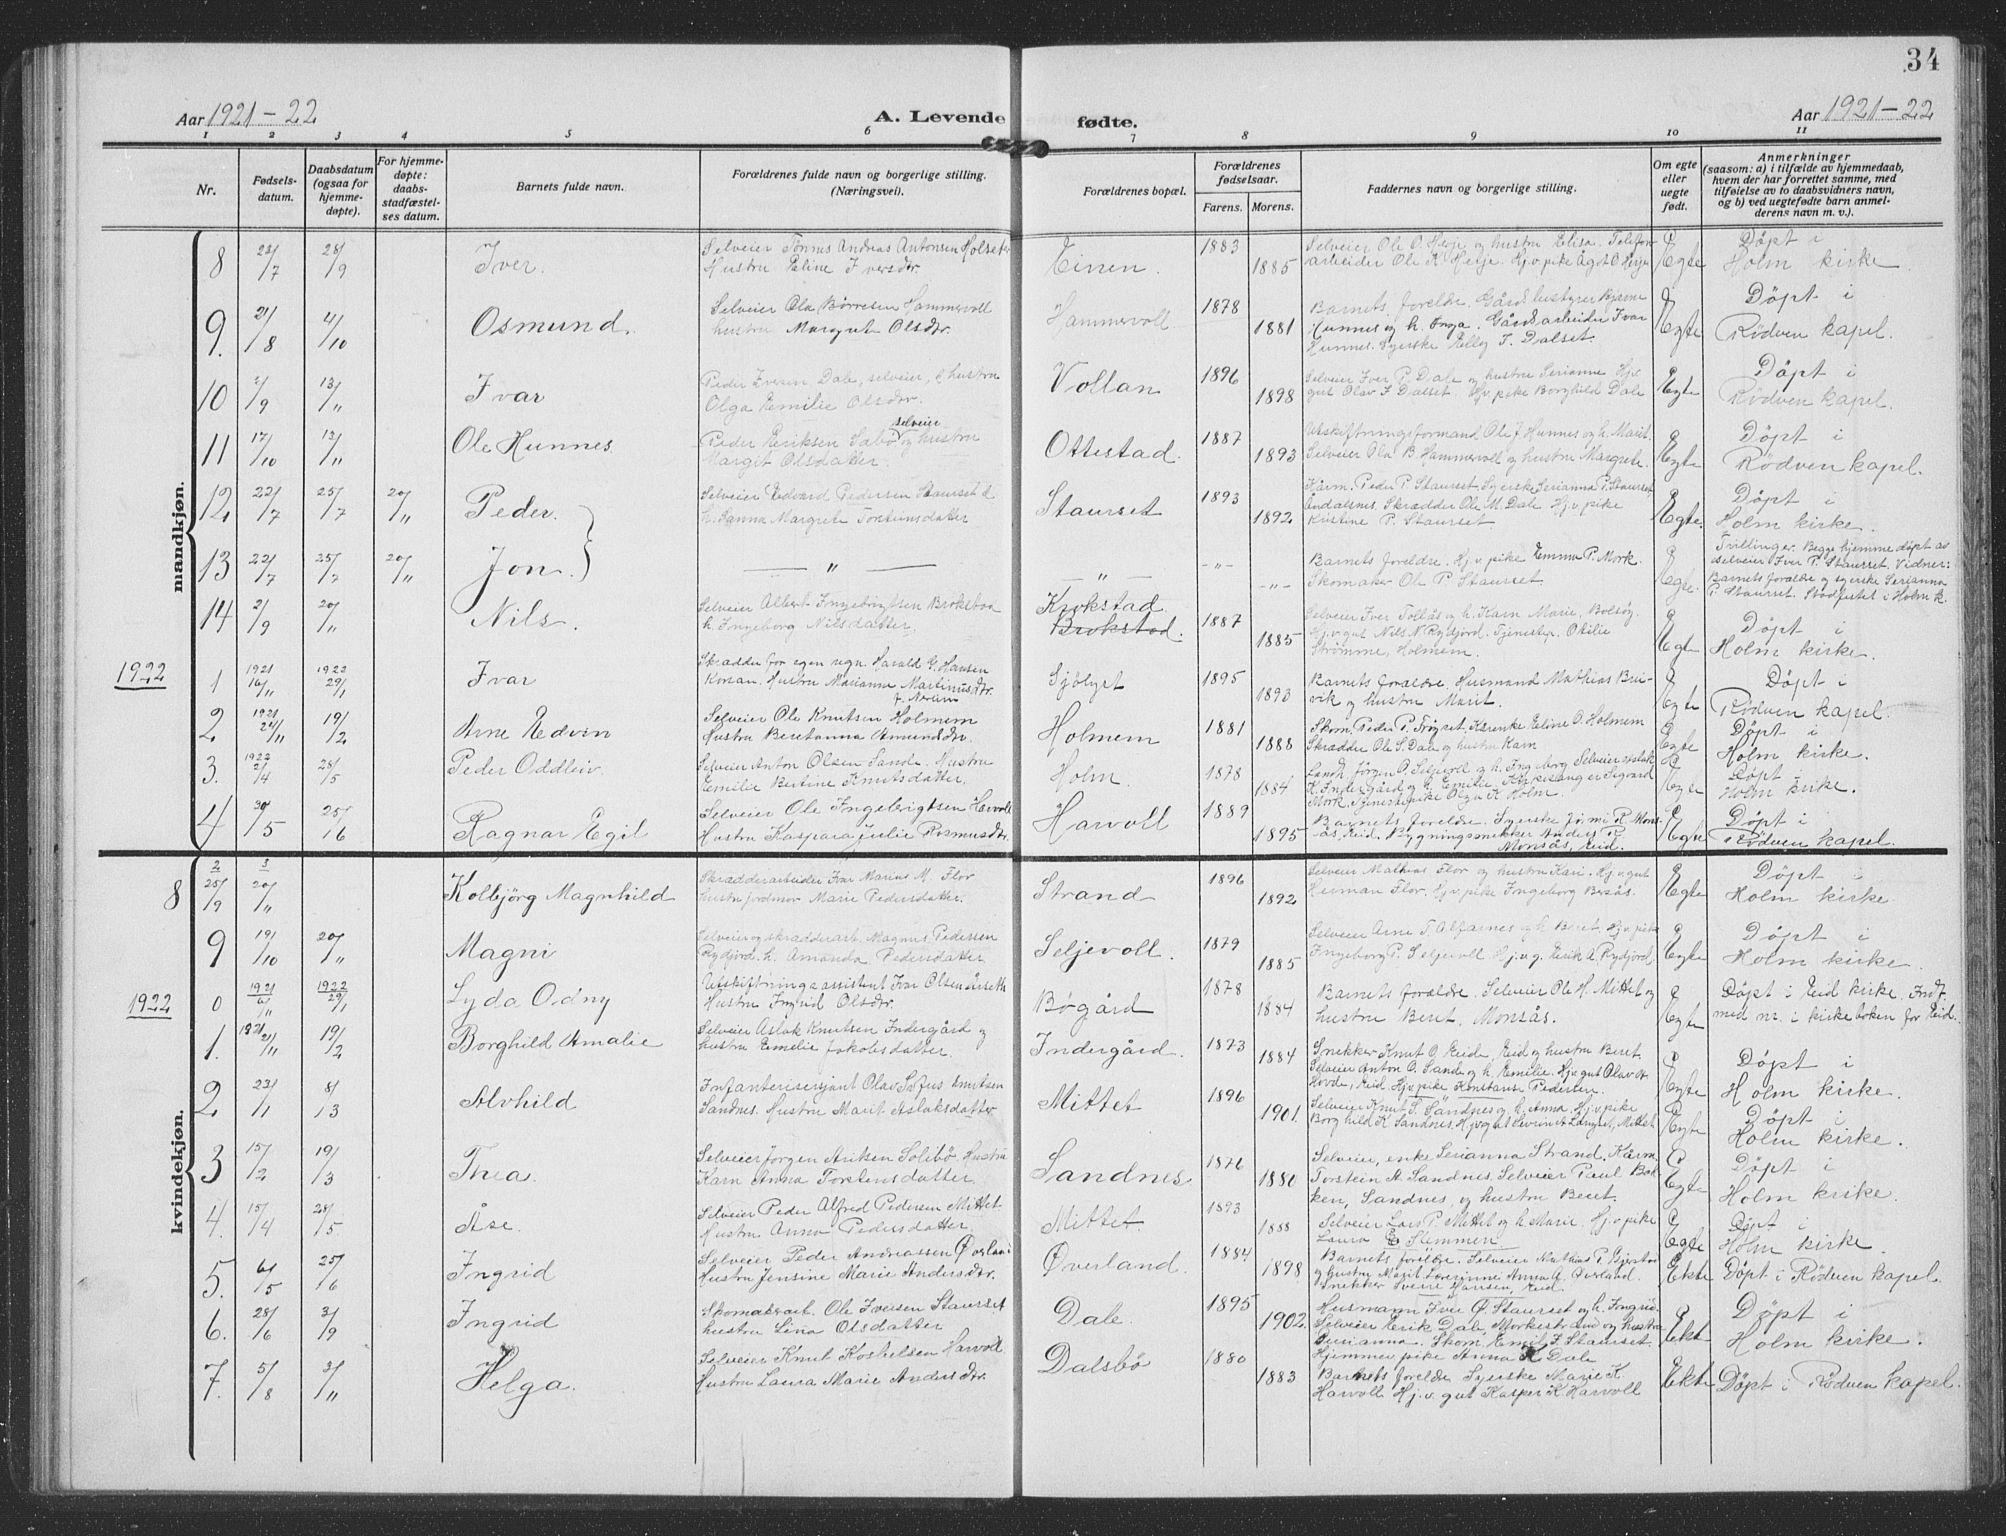 34
Aar 1921-22 A. Levende fødte. Aar 1921-22
1 2 3 4 5 6 7 8 9 10 11
Nr.
Fødsels-
datum.
Daabsdatum
(ogsaa for
hjemme-
døpte).
For hjemme-
døpte:
daabs-
stadfæstel-
ses datum.
Barnets fulde navn.
Forældrenes fulde navn og borgerlige stilling.
(Næringsvei).
Forældrenes bopæl.
Forældrenes
fødselsaar.
Farens. Morens.
Faddernes navn og borgerlige stilling.
Om egte
eller
uegte
født.
Anmerkninger
(saasom: a) i tilfælde av hjemmedaab,
hvem der har forrettet samme, med
tilføielse av to daabsvidners navn,
og b) ved uegtefødte barn anmel-
derens navn m. v.).
mandkjøn.
8 22/7 28/9 Iver. Selveier Tønnes Andreas Antonsen Holseter
Hustru Eline Iversdtr. Einen. 1883 1885 Selveier Ole O. Herje og hustru Elisa. Telefon-
arbeider Ole K. Herje. Hj.v. pike Agot O Herje Egte Døpt i
Holm kirke.
9. 21/8 4/10 Osmund. Selveier Ola Børresen Hammervoll
hustru Margret Olsdtr. Hammervoll 1878 1881 Barnets forældre. Gårdbestyrer Bjarne
Hunnes og h. Inga. Gårdsarbeider Ivar
Hunnes. Syerske Elley T. Dalset. Egte Døpt i
Rødven kapel.
10 2/9 13/11 Ivar Peder Iversen Dale, selveier, & hustru
Olga Emilie Olsdtr. Vollan 1896 1898 Selveier Iver P. Dale og hustru Serianne Hj.v.
gut Olav I Dalset. Hj.v. pike Borghild Dale Egte Døpt i
Rødven kapel.
11 17/10 13/11 Ole Hunnes. Peder Eriksen Sabø selveier og hustru
Margit Olsdatter. Ottestad. 1887 1893 Utskiftningsformand Ole J Hunnes og h. Marit.
Selveier Ola B. Hammervoll og hustru Margrete. Egte Døpt i
Rødven kapel.
12 22/7 25/7 20/11 Peder. Selveier Edvard Pedersen Staurset &
h. Hanna Margrete Torsteinsdatter Staurset 1893 1892 Kårm. Peder P. Staurset. Syerske Serianna P. Staurset
Åndalsnes. Skrædder Ole M. Dale Hj.v. pike
Kristine P. Staurset Egte. Døpt i
Holm kirke.
13 22/7 25/7 20/11 Jon. — " — — " — -"- -"- Barnets forældre. Hj.v. pike Emma P. Mork.
Skomaker Ole P. Staurset. Egte. Tvillinger. Begge hjemmedøpt av
selveier Iver P. Staurset. Vidner:
Barnets forældre og syerske Serianna
P. Staurset. Stadfestet i Holm k.
14 2/9 20/11 Nils. Selveier Albert Ingebrigtsen Brokstad
h. Ingeborg Nilsdatter. Krokstad
Brokstad. 1887 1885 Selveier Iver Tollås og h. Karn Marie, Bolsøy.
Hj.v. gut Nils N. Rydjord. Tjenestep. Otilie
Strømme, Holmem. Egte Døpt i
Holm kirke.
1922
1 1921 16/11 1922 29/1 Ivar Skrædder for egen regn. Harald G. Hansen
Hustru Marianne Martinusdtr. Sjölyst 1895 1893 Barnets forældre. Husmand Mathias Brei-
vik og hustru Marit. Egte Døpt i
Rødven kapel.
2 1921 24/11 19/2 Arne Edvin Selveier Ole Knutsen Holmem
Hustru Beretanna Amundsdtr. Holmem 1881 1888 Skom. Peder P. Frøyset. Eline O. Holmem
Skrædder Ole S. Dale og hustru Karn Egte Døpt i
Holm kirke.
3. 1922 2/4 28/5 Peder Oddleiv. Selveier Anton Olsen Sande. Hustru
Emilie Bertine Knutsdatter. Holm. 1878 1884 Landh. Jörgen O. Seljevoll og h. Ingeborg Selveier Aslak
K. Indergård og h. Emilie Kirkesanger Sigvard
Mork. Tjenestepike Olga K. Holm. Egte Døpt i
Holm kirke.
4 30/5 25/6 Ragnar Egil Selveier Ole Ingebrigtsen Harvoll
Hustru Kaspara Julie Rasmusdtr. Harvoll 1889 1895 Barnets forældre. Syerske Jørmi K. Mons-
ås, Eid. Bygningssnekker Anders K.
Monsås, Eid. Egte Døpt i
Rødven kapel.
kvindekjøn.
2 3
8 25/9 20/11 Kolbjörg Magnhild Skrædderarbeider Ivar Marius M. Flor
hustru jordmor Marie Pedersdatter. Strand 1896 1892 Selveier Mathias Flor og hustru Kari. Hj.v. gut
Herman Flor. Hj.v. pike Ingeborg Bersås. Egte Døpt i
Holm kirke
9 19/10 20/11 Magni Selveier og skrædderarb. Magnus Pedersen
Rydjord. h. Amanda Pedersdatter. Seljevoll. 1879 1885 Selveier Arne T. Alfarnes og h Beret. Hj.v. pike
Ingeborg P. Seljevoll Hj.v.g. Eirik A. Rydjord. Egte Døpt i
Holm kirke.
1922
0 1921 6/11 1922 29/1 Lyda Odny Utskiftningsassistent Ivar Olsen Årseth
Hustru Ingrid Olsdtr. Bøgård 1878 1884 Barnets forældre. Selveier Ole H. Mittet og
hustru Beret. Monsås. Egte Døpt i Eid kirke. Indf.
med nr. i kirkeboken for Eid.
1. 1921 21/11 19/2 Borghild Amalie Selveier Aslak Knutsen Indergård og
hustru Emelie Jakobsdatter. Indergård. 1873 1884 Snekker Knut O. Eide, Eid og hustru Beret
Selveier Anton O. Sande og h. Emilie. Hj.v. gut Olav A.
Hovde, Eid Hj.v. pike Konstanse Pedersen Egte Døpt i
Holm kirke.
2 23/1 8/13 Alvhild Infanterisersjant Olav Sofus Knutsen
Sandnes. Hustru Marit Aslaksdatter Mittet 1896 1901. Selveier Knut S. Sandnes og h. Anna. Hj.v. pike
Borghild K. Sandnes. Hj.v. gut Severin A Langset, Mittet Egte Døpt i
Holm kirke.
3 15/2 19/13 Thea. Selveier Jörgen Ariksen Solibö Hustru
Karn Anna Torstensdatter Sandnes 1876 1880 Selveier, enke Serianna Strand. Kårm.
Torstein A. Sandnes. Selveier Paul Bak-
ken, Sandnes, og hustru Beret. Egte Døpt i
Holm kirke.
4. 15/4 28/5 Åse. Selveier Peder Alfred Pedersen Mittet
Hustru Anna Pedersdatter. Mittet 1893 1888 Selveier Lars P. Mittet og h. Marie. Hj.v. pike
Laura E. Stemmen Egte Døpt i
Holm kirke.
5. 6/5 25/6 Ingrid Selveier Peder Andreassen Øverland
Hustru Jensine Marie Andersdtr. Øverland. 1884 1898 Barnets forældre. Selveier Mathias P. Gjerstad
og hustru Marit. Anna G. Øverland.
Snekker Sverre Hansen, Eid. Ekte Døpt i Rødven kapel.
6. 28/6 3/9 Ingrid Skomakerarb. Ole Iversen Staurset
hustru Lina Olsdatter Dale. 1895 1902. Husmann Iver Ø. Staurset og h. Ingrid.
Selveier Eirik Dale Morkestrand og hustru
Serianna. Skom. Emil I Staurset.
Hjemmev. pike Anna K Dale Ekte Døpt i
Holm kirke.
7. 5/8 3/11 Helga. Selveier Knut Kostelsen Harvoll
Hustru Laura Marie Andersdtr. Dalsbö 1880 1883 Barnets forældre Syerske Marie K
Harvoll Hj.v. gut Kasper K Harvoll Ekte Døpt i Rødven kapel.